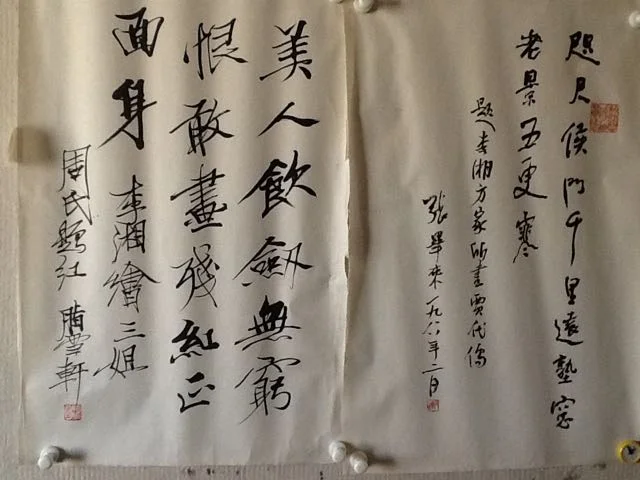 咫尺侯門千里遠塾窓
老景五更寒
題李湘方家所畫賈代儒
張畢來一九八六年二日
美人飲劍無窮
恨敢畫殘紅正
面身 李湘繪三姐
周氏題红 脂雪軒